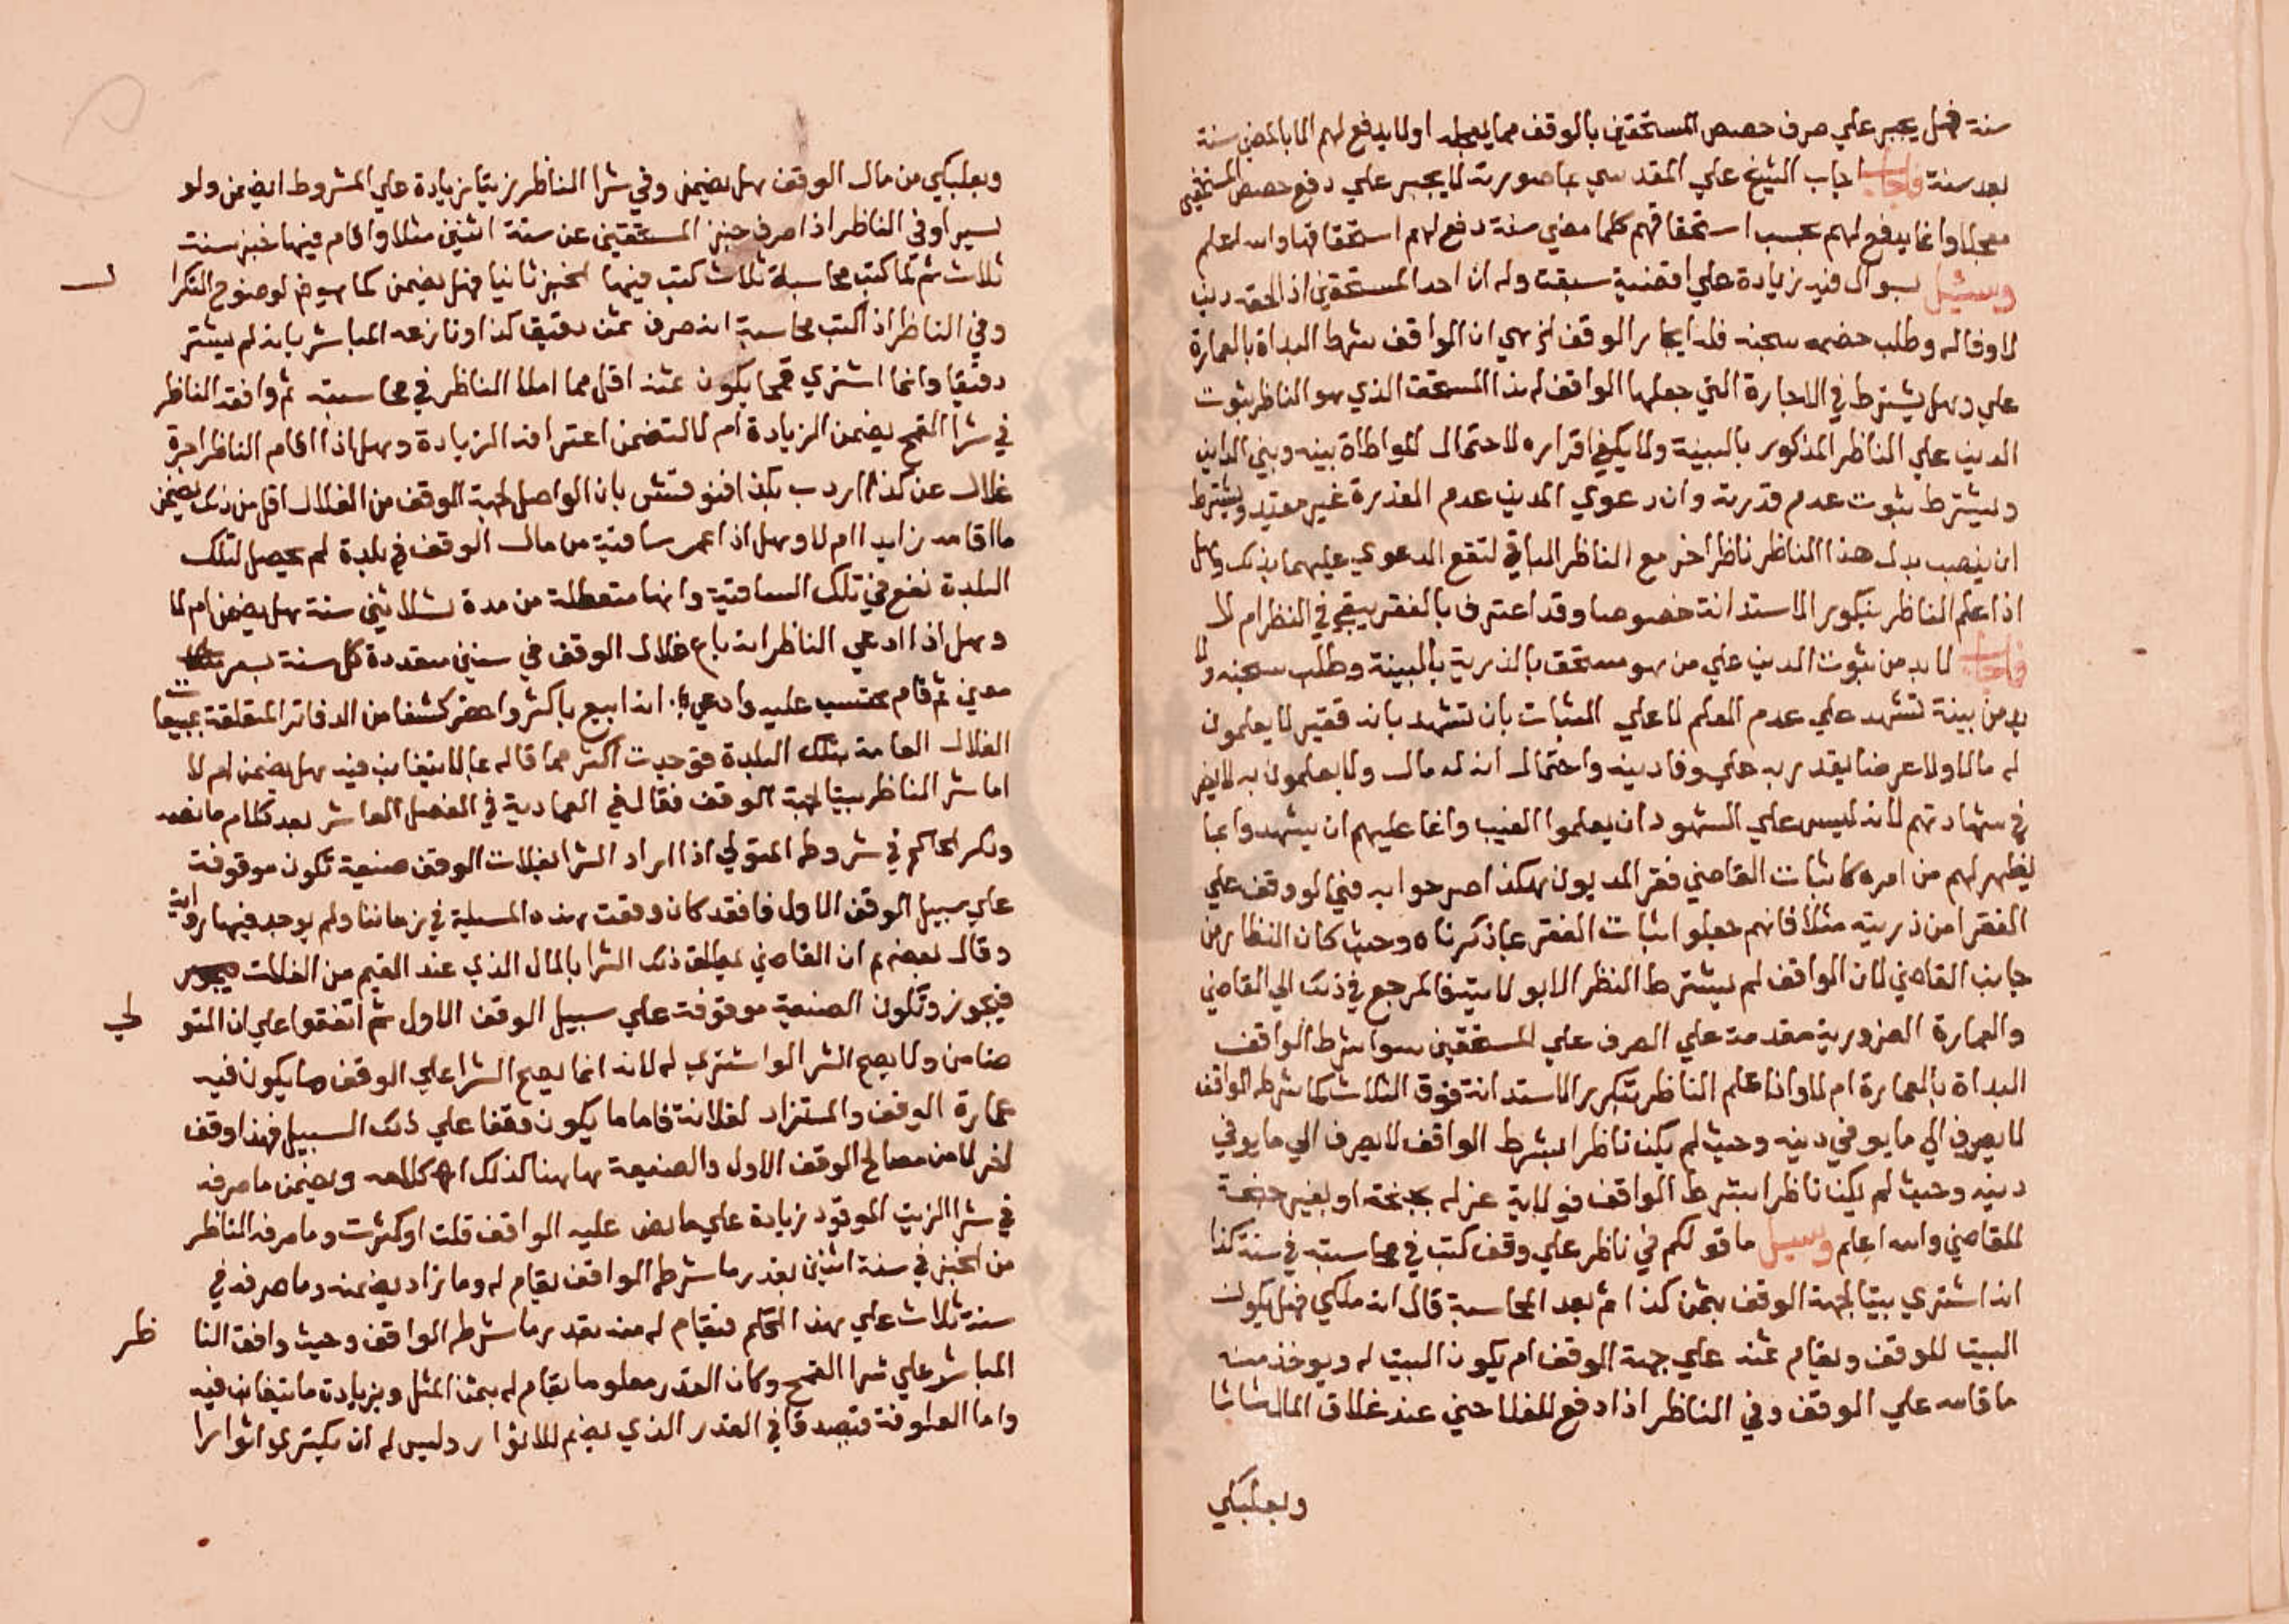 سنة فهل يجبر علي صرف حصص المستحقين بالوقف مما يعجله او لا يدفع لهم الا بالمضي سنة
بعد سنة فاجاب اجاب الشيخ علي المقدسي بما صورته لا يجبر علي دفع حصص المستحقين
معجلا وانما يدفع لهم بحسب استحقاقهم كلما مضي سنة دفع لهم استحقاقها والله اعلم
وسئيل بسوال فيه زيادة علي اقضية سبقت وله ان احد المستحقين اذا لحقه دين
لا وفا له وطلب خصمه سجنه فله ايجار الوقف الخ هي ان الواقف شرط البداة بالعمارة
علي وهل يشترط في الاجارة التي جعلها الواقف لهذا المستحق الذي هو الناظر ثبوت
الدين علي الناظر المذكور بالبينة ولا يكفي اقراره لاحتمال المواطاة بينه وبين الداين
ويشترط ثبوت عدم قدرته وان دعوي المدين عدم القدرة غير مفيد ويشترط
ان ينصب بدل هذا الناظر ناظرا اخر مع الناظر الباقي لتقع الدعوي عليهما بذلك وهل
اذا علم الناظر بتكرير الاستدانة خصوصا وقد اعترف بالفقر يبقي في النظر ام لا
فاجاب لا بد من ثبوت الدين علي من هو مستحق بالذرية بالبينة وطلب سجنه ولا
بد من بينة تشهد علي عدم العلم لا علي الثبات بان تشهد بانه فقير لا يعلمون
له مالا ولا عرضا يقدر به علي وفا دينه واحتمال انه له مال ولا يعلمون به لا يضر
في شهادتهم لانه ليس علي الشهود ان يعلموا الغيب وانما عليهم ان يشهدوا بما
يظهر لهم من امره كاثبات القاضي فقر المديون هكذا صرحوا به فيما لو وقف علي
الفقرا من ذريته مثلا فانهم جعلوا اثبات الفقر بما ذكرناه وحيث كان النظار من
جانب القاضي لان الواقف لم يشترط النظر الا بولايته فالمرجع في ذلك الي القاضي
والعمارة الضرورية مقدمة علي الصرف علي المستحقين سوا شرط الواقف
البداة بالعمارة ام لا واذا علم الناظر بتكرير الاستدانة فوق الثلاث كما شرطه الواقف
لا يصرف الي ما يوفي دينه وحيث لم يكن ناظرا بشرط الواقف لا يصرف الي ما يوفي
دينه وحيث لم يكن ناظرا بشرط الواقف فولاية عزله بجنحة او بغير جنحة
للقاضي والله اعلم وسيل ما قولكم في ناظر علي وقف كتب في محاسبته في سنة كذا
انه اشتري بيتا لجهة الوقف بثمن كذا ثم بعد المحاسبة قال انه ملكي فهل يكون
البيت للوقف ويقام ثمنه علي جهة الوقف ام يكون البيت له ويوخذ منه
ما قامه علي الوقف وفي الناظر اذا دفع للفلاحين عند غلاق المال شاشا
وبعلبكي
وبعلبكي من مال الوقف هل يضمن وفي شرا الناظر زيتا بزيادة علي المشروط ايضمن ولو
يسيرا وفي الناظر اذا صرف خبز المستحقين عن سنة اثنين مثلا واقام فيها خبز سنة
ثلاث ثم لما كتب محاسبة ثلاث كتب فيها الخبز ثانيا فهل يضمن كما هو في لوضوح التكرا
وفي الناظر اذا كتب محاسبة انه صرف ثمن دقيق كذا ونازعه المباشر بانه لم يشتر
دقيقا وانما اشتري قمحا يكون ثمنه اقل مما املا الناظر في محاسبته ثم وافقه الناظر
في شرا القمح يضمن الزيادة ام لا لتضمن اعترافه الزيادة وهل اذا اقام الناظر اجرة
غلال عن كذا اردب بكذا فنوقش بان الواصل لجهة الوقف من الغلال اقل من ذلك يضمن
ما اقامه زايدا ام لا وهل اذا عمر ساقية من مال الوقف في بلدة لم يحصل لتلك
البلدة نفع في تلك الساقية وانها متعطلة من مدة ثلاثين سنة هل يضمن ام لا
وهل اذا ادعي الناظر انه باع غلال الوقف في سنين متعددة كل سنة بسعر
معين ثم قام محتسب عليه وادعي انه ابيع باكثر واحضر كشفا من الدفاتر المتعلقة بمبيعات
الغلال العامة بتلك البلدة فوجدت اكثر مما قاله بما لا يتغابن فيه هل يضمن ام لا
اما شر الناظر بيتا لجهة الوقف فقال في العمادية في الفصل العاشر بعد كلام ما نصه
وذكر الحاكم في شروطه المتولي اذا اراد الشرا بغلات الوقف ضيعة تكون موقوفة
علي سبيل الوقف الاول فافقد كان وقعت هذه المسيلة في زماننا ولم يوجد فيها رواية
وقال بعضهم ان القاضي يطلق ذلك الشرا بالمال الذي عند القيم من الغلات
فيجوز وتكون الضيعة موقوفة علي سبيل الوقف الاول ثم اتفقوا علي ان المتو لي
ضامن ولا يصح الشرا لو اشتري له لانه انما يصح الشرا علي الوقف ما يكون فيه
عمارة الوقف والمستزاد لغلاته فاما ما يكون وقفا علي ذلك السبيل فهذا وقف
اخر لا من مصالح الوقف الاول والضيعة هاهنا كذلك اه كلامه ويضمن ما صرفه
في شرا الزيت الموقود زيادة علي ما نص عليه الواقف قلت او كثرت وما صرفه الناظر
من الخبز في سنة اثنين بقدر ما شرطه الواقف يقام له وما زاد يضمنه وما صرفه في
سنة ثلاث علي هذا الحكم فيقام له منه بقدر ما شرطه الواقف وحيث وافق النا ظر
المباشر علي شرا القمح وكان القدر معلوما يقام له بثمن المثل وبزيادة ما يتغابن فيه
واما العلوفة فيصدق في القدر الذي يضم للاثوار وليس له ان يكتري اثوارا